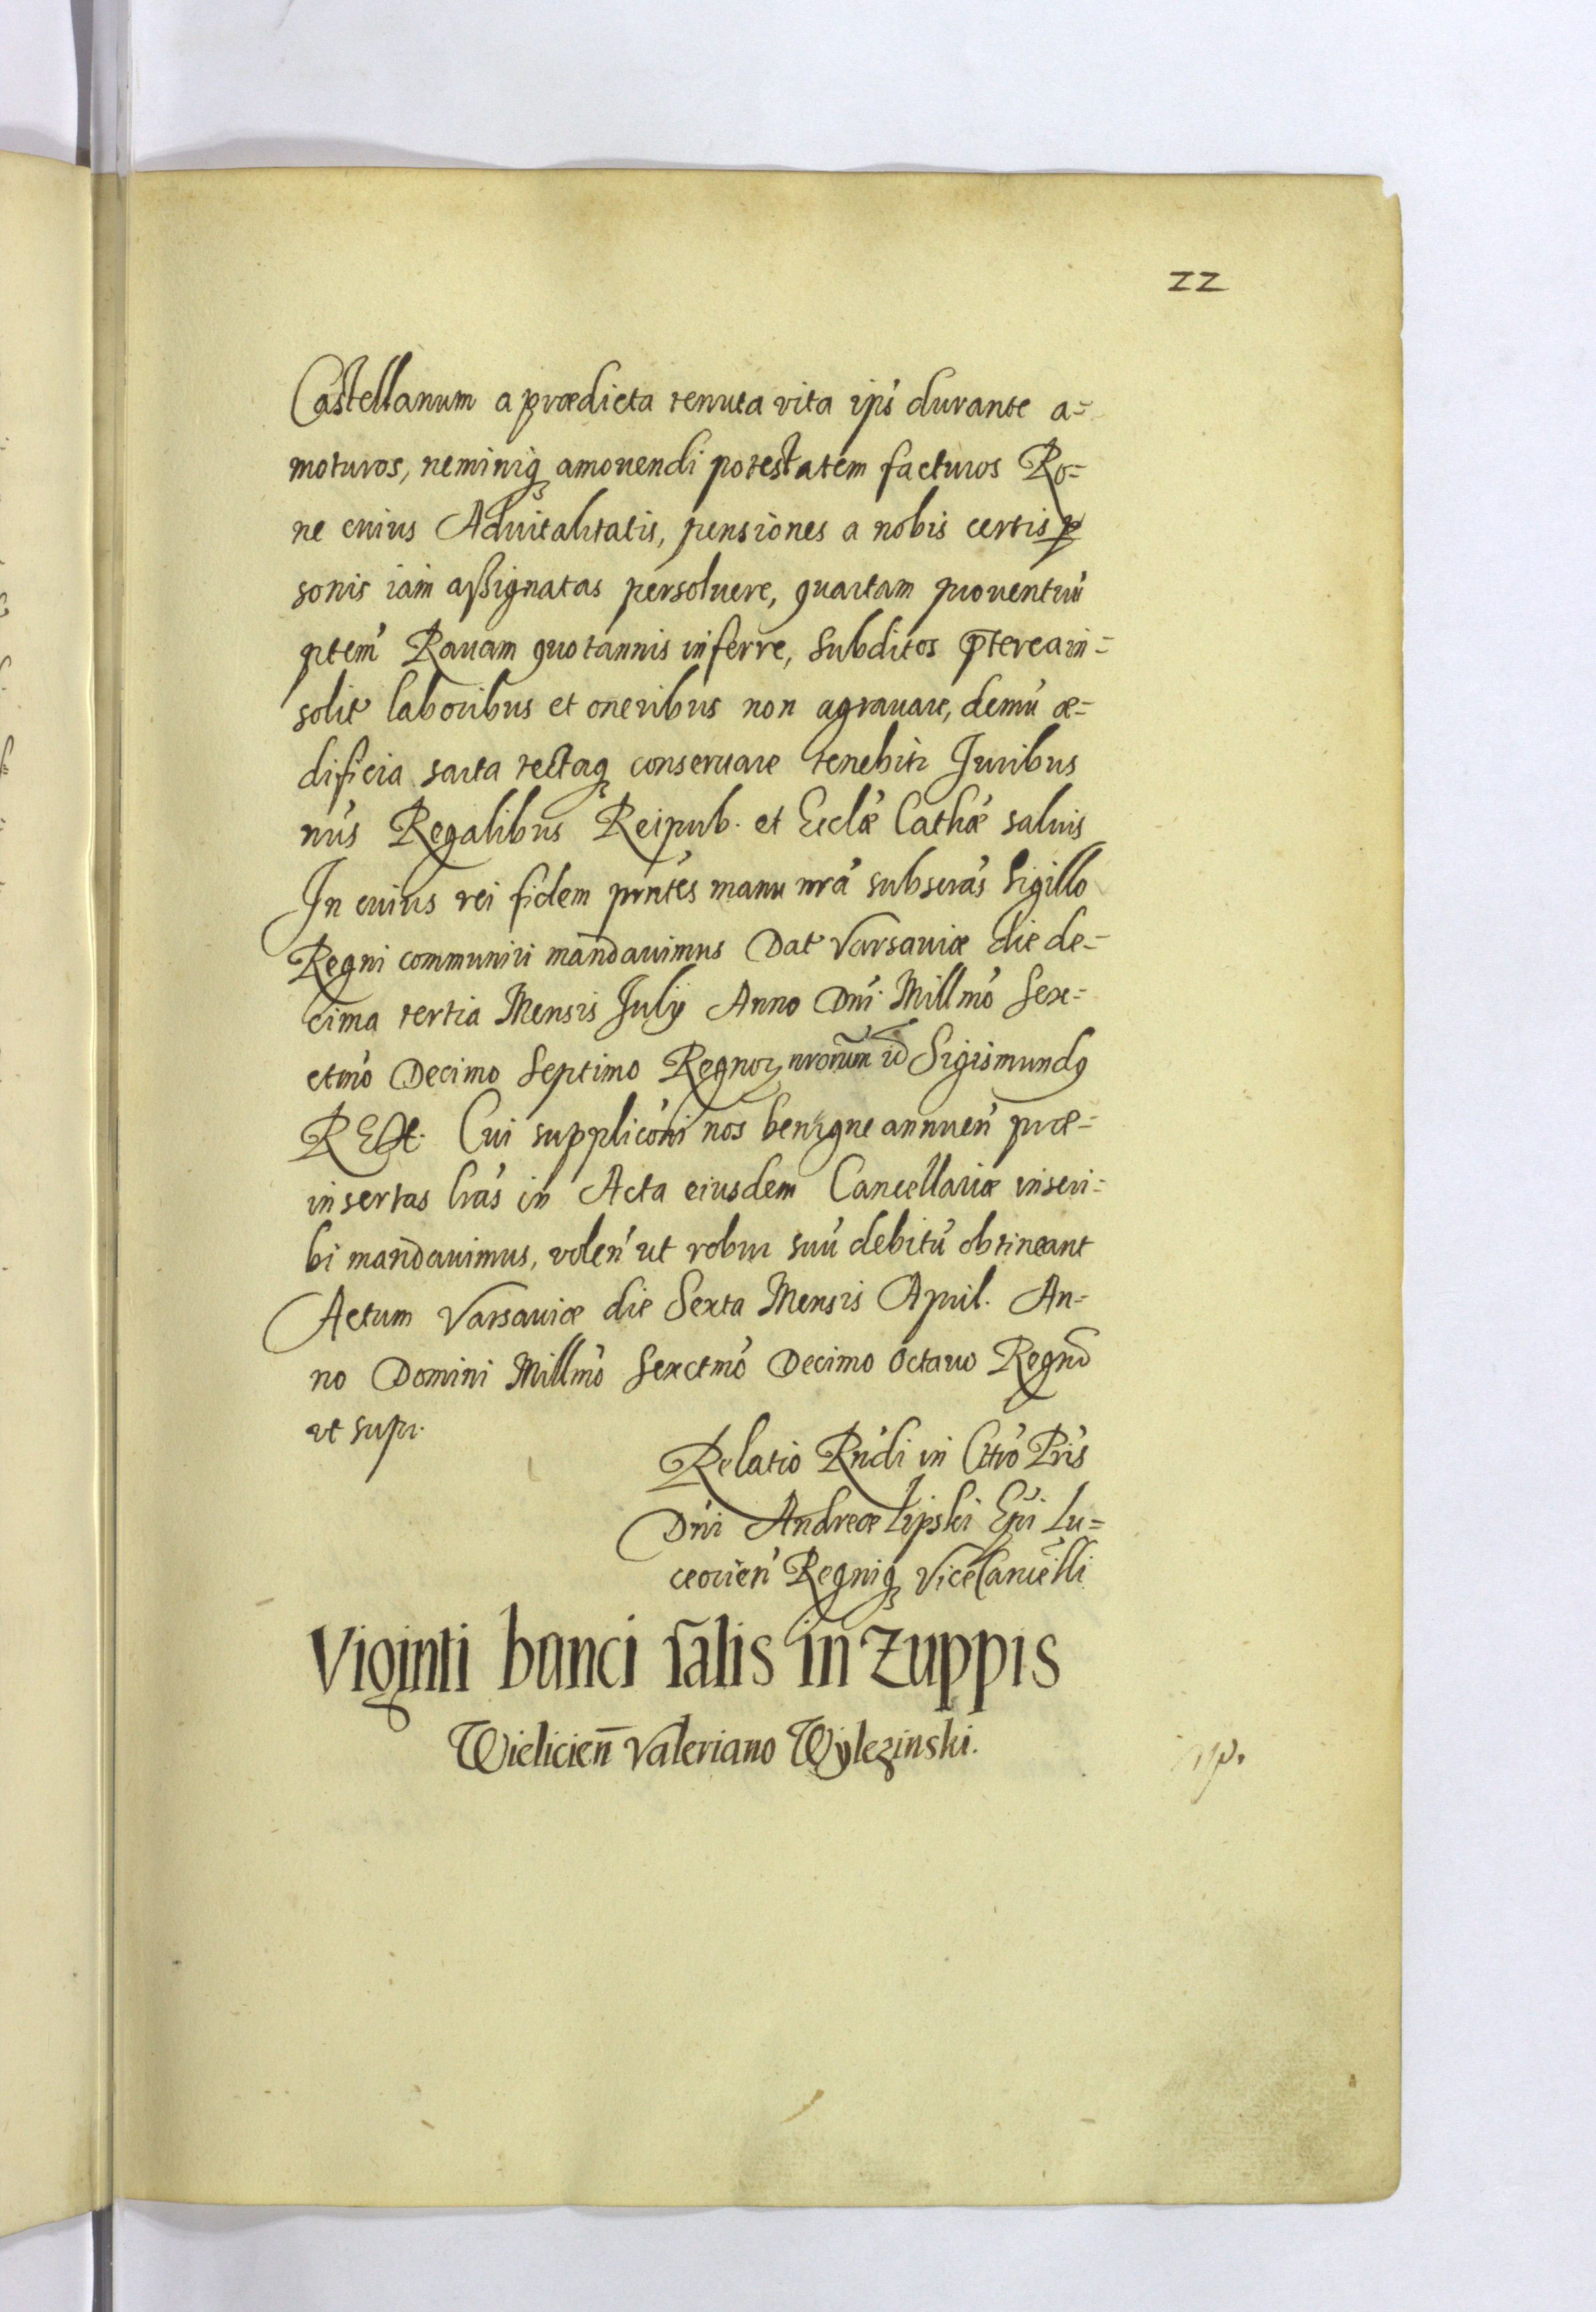 22
Castellanum a prædicta tenuta vita ips' durante a=
moturos, neminiq₃ amouendi potestatem facturos Ro=
ne cuius Aduitalitatis, pensiones a nobis certis ꝑ
sonis iam aßignatas persoluere, quartam prouentuū
ptem' Rauam quotannis inferre, subditos p̄terea in=
solit' laboribus et oneribus non agrauare, demū æ=
dificia sarta tectaq₃ conseruare tenebitr Juribus
nr̄is Regalibus Reipub. et Eccl'æ Cath'æ saluis
In cuius rei fidem prntes manu nr̄a subscr̄as Sigillo
Regni communiri mandauimus Dat' Varsauiæ die de=
cima tertia Mensis Julij Anno Dn̄i Millmo Sex=
ctmo Decimo Septimo Regnoꝝ nrorum id Sigismundꝯ
REX. Cui supplicōni nos benigne annuen' præ=
insertas lr̄as in Acta eiusdem Cancellariæ inscri=
bi mandauimus, volen' ut robur suū debitū obtineant
Actum Varsauiæ die Sexta Mensis April. An=
no Domini Millmo Sexctmo Decimo octauo Regno
ut supr.
Relatio Rndi in Chro Pris
Dn̄i Andreæ Lipski Epi Lu=
ceorien' Regniq₃ ViceCancelli
Viginti banci salis in Zuppis
Wielicien̄ Valeriano Wÿlezinski.